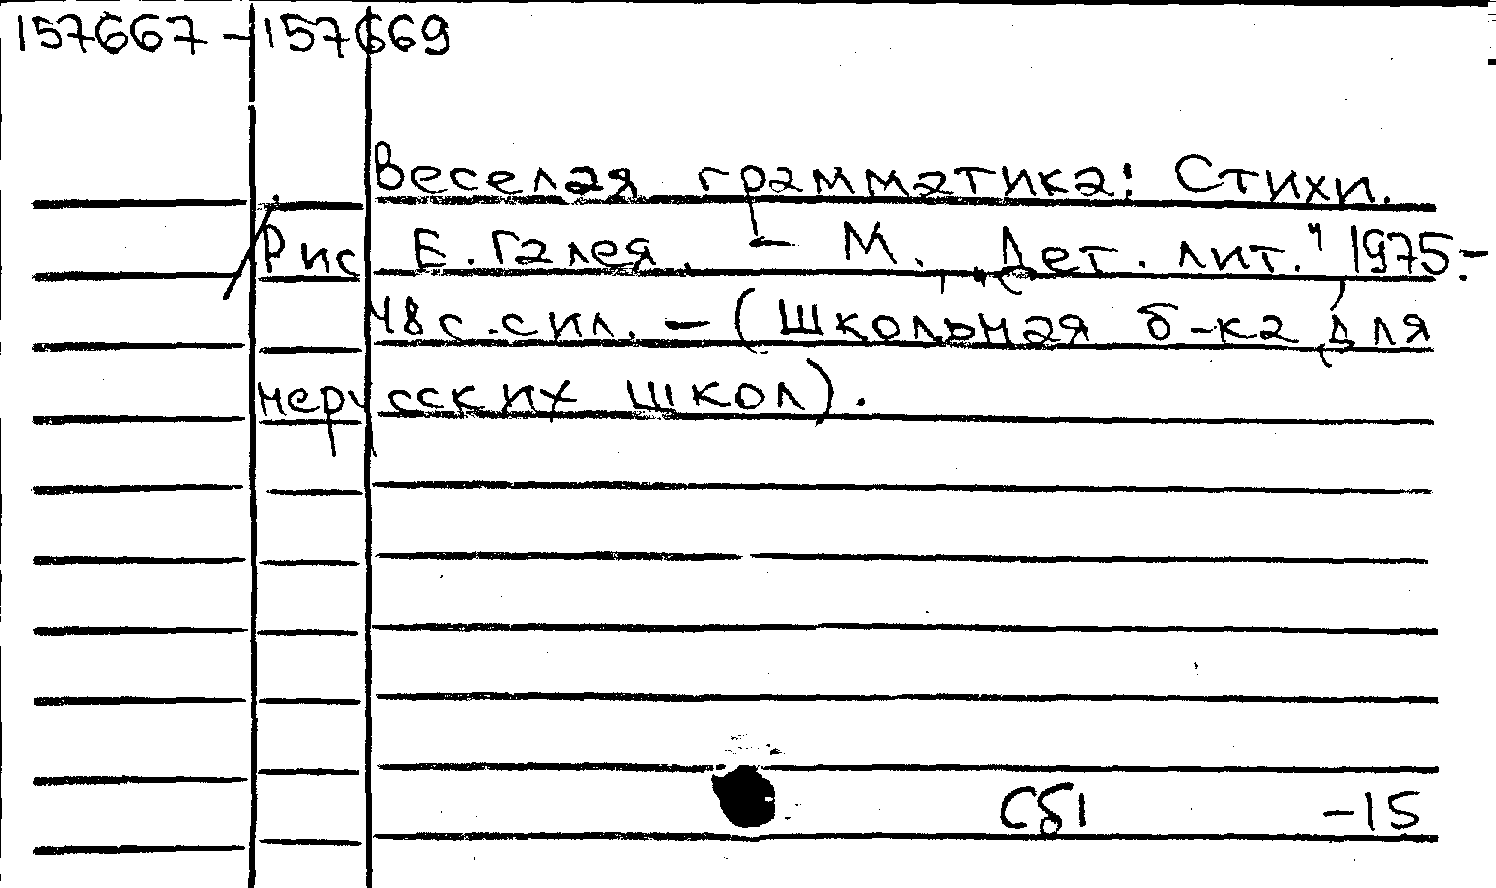 157667-157669
Веселая грамматика: Стихи.
/Рис Е. Галея. - М., „Дет. лит." 1975.-
48 с. с ил. - (Школьная б-ка для
нерусских школ).
Сб1 -15